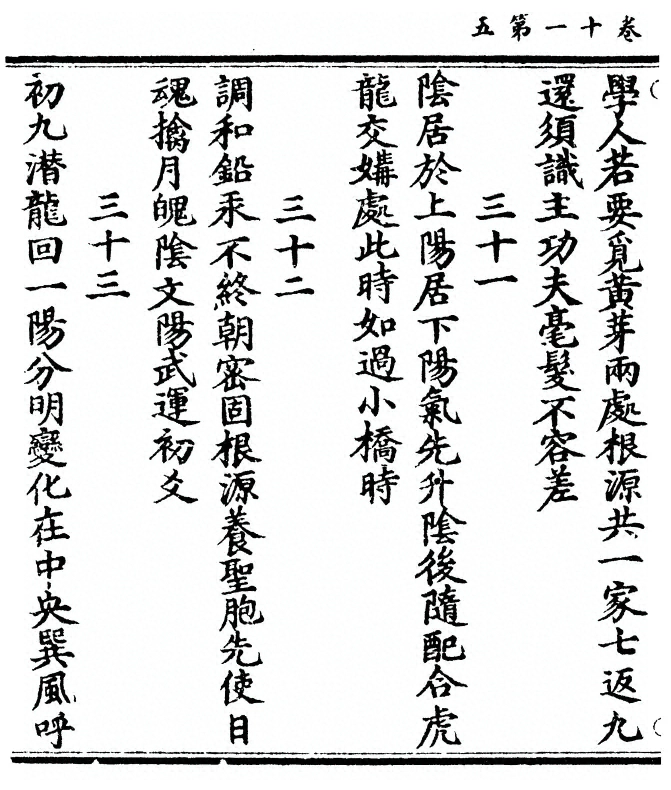 卷十一第五
學人若要覓黃芽兩處根源共一家七返九
還須識主功夫毫髮不容差
三十一
陰居於上陽居下陽氣先升陰後隨配合虎
龍交媾處此時如過小橋時
三十二
調和鉛汞不終朝密固根源養聖胞先使日
魂擒月魄陰文陽武運初爻
三十三
初九潛龍回一陽分明變化在中央巽風呼